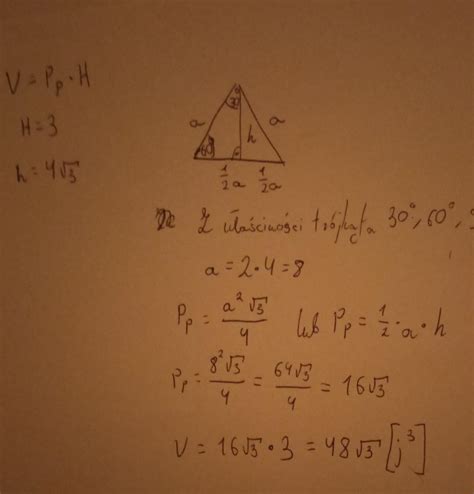 V = Pp · H
H = 3
h = 4√3
30°
a
a
h
60°
1/2a 1/2a
Z właściwości trójkąta 30°, 60°,
a = 2·4 = 8
Pp = a²√3/4 lub Pp = 1/2 · a · h
Pp = 8²√3/4 = 64√3/4 = 16√3
V = 16√3 · 3 = 48√3 [j³]